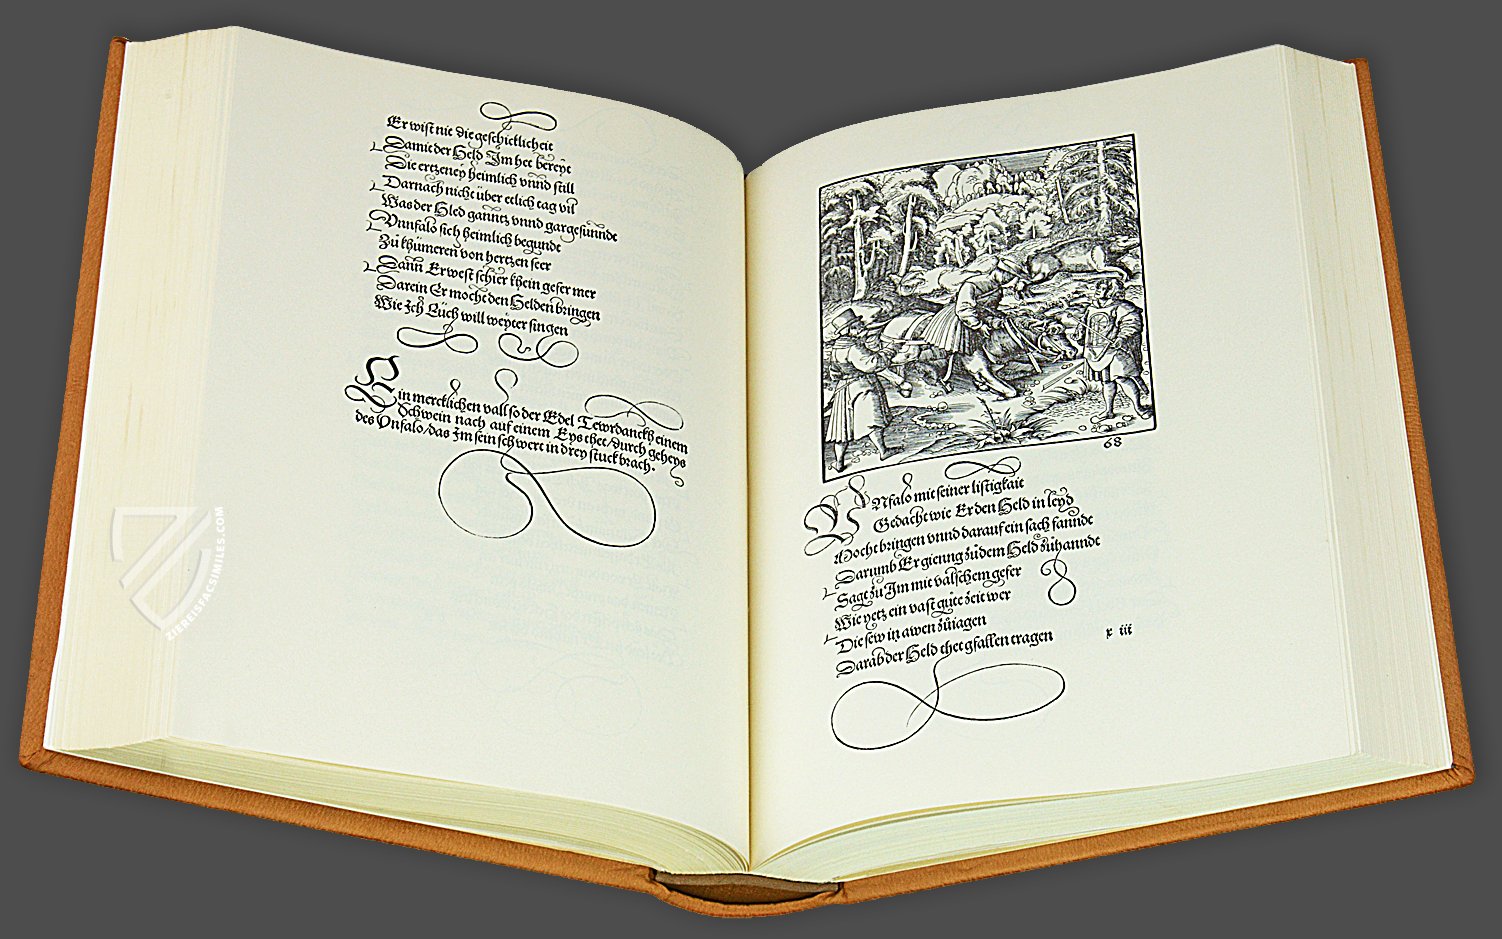 Er wist nie die geschicklicheit
Damit der Held Im het bereyt
Die ertzeney heimlich vnnd still
Darnach nicht über etlich tag vil
Was der Hled ganntz vnnd gar gesunnde
Vnnfalo sich heimlich begunde
Zů khümeren von hertzen seer
Dann Er west schier khein gefer mer
Darein Er mocht den Helden bringen
Wie Ich Euch will weyter singen
Ein mercklichen vall so der Edel Tewrdanckh einem
Schwein nach auf einem Eys thet/durch geheys
des Vnfalo/das Im sein schwert in drey stuck brach.
68
VNfalo mit seiner listigkait
Gedacht wie Er den Held in leyd
Mocht bringen vnnd darauf ein sach fannde
Darumb Er gienng zů dem Held zůhannde
Sagt zů Im mit valschem gefer
Wie yetz ein vast gůte zeit wer
Die sew in awen zůiagen
Darab der Held thet gfallen tragen
x iii
ZIEREISFACSIMILES.COM